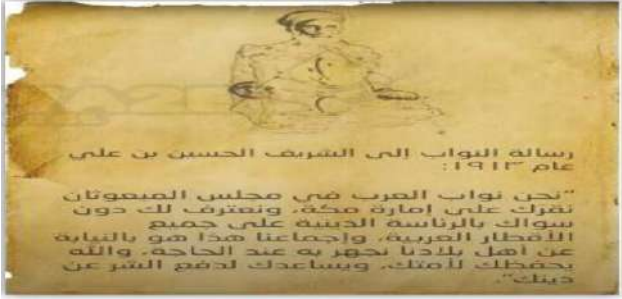 رسالة النواب إلى الشريف الحسين بن علي
عام ١٩١٣:
"نحن نواب العرب في مجلس المبعوثان
نقرك على إمارة مكة، ونعترف لك دون
سواك بالرئاسة الدينية على جميع
الأقطار العربية، وإجماعنا هذا هو بالنيابة
عن أهل بلادنا نجهر به عند الحاجة، والله
يحفظك لأمتك، ويساعدك لدفع الشر عن
دينك".